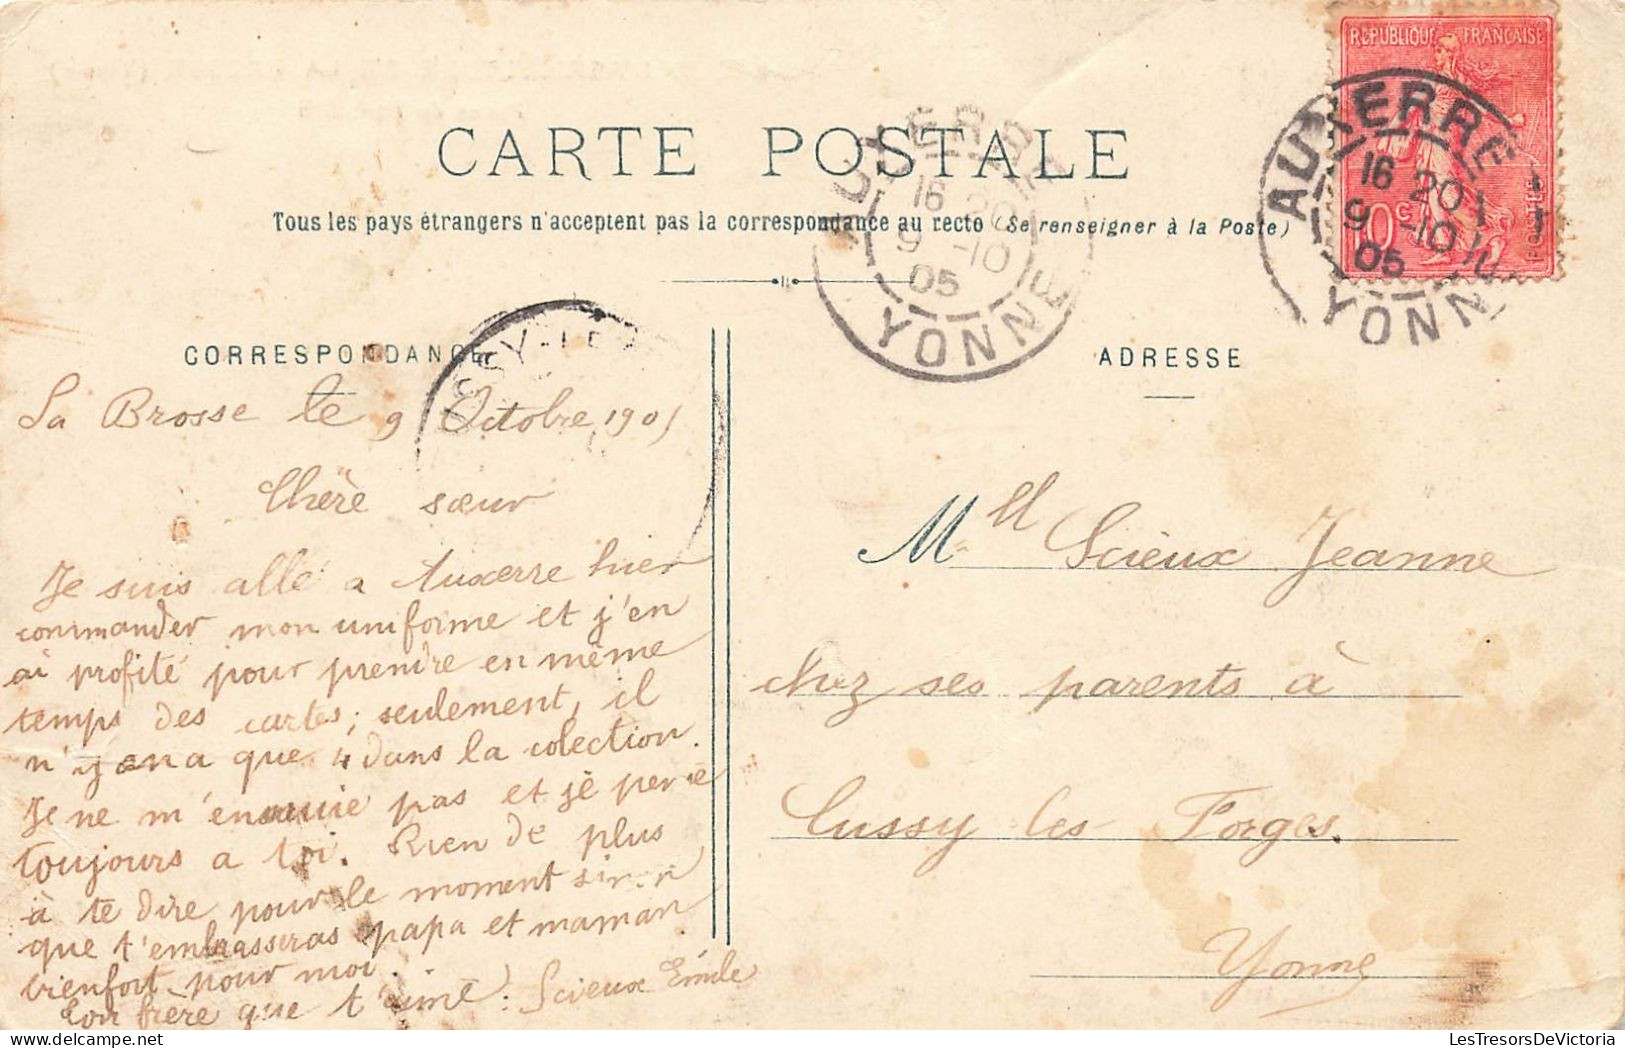 RÉPUBLIQUE FRANÇAISE
10c
POSTES
AUXERRE
16 20
9 -10
05
YONNE
CARTE POSTALE
AUXERRE
16 20
9 -10
05
YONNE
Tous les pays étrangers n'acceptent pas la correspondance au recto (Se renseigner à la Poste)
CORRESPONDANCE
ADRESSE
La Brosse le 9 Octobre 1905
Chère sœur
Je suis allé a Auxerre hier
commander mon uniforme et j'en
ai profité pour prendre en même
temps des cartes; seulement, il
n'y en a que 4 dans la colection.
Je ne m'ennuie pas et je pense
toujours a toi. Rien de plus
à te dire pour le moment sinon
que t'embrasseras papa et maman
bienfort pour moi.
Ton frère que t'aime : Scieux Émile
Mlle Scieux Jeanne
chez ses parents à
Cussy les Forges.
Yonne
LesTresorsDeVictoria